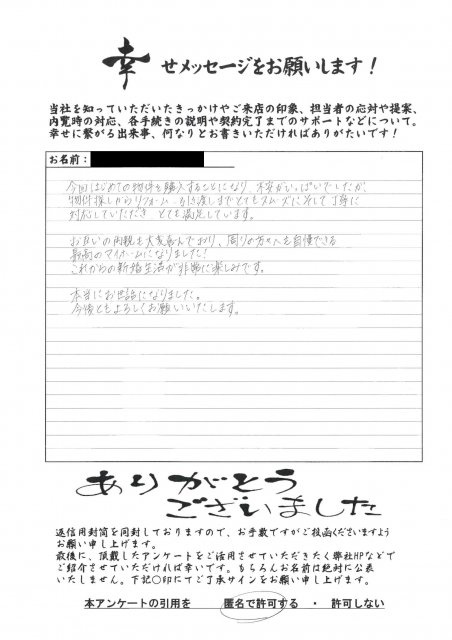 幸せメッセージをお願いします！
当社を知っていただいたきっかけやご来店の印象、担当者の応対や提案、
内覧時の対応、各手続きの説明や契約完了までのサポートなどについて。
幸せに繋がる出来事、何なりとお書きいただければありがたいです！
お名前：
今回はじめての物件を購入することになり、不安がいっぱいでしたが、
物件探しからリフォーム、引き渡しまでとてもスムーズにそして丁寧に
対応していただき とても満足しています。
お互いの両親も大変喜んでおり、周りの方々へも自慢できる
最高のマイホームになりました！
これからの新婚生活が非常に楽しみです。
本当にお世話になりました。
今後ともよろしくお願いいたします。
ありがとう
ございました
返信用封筒を同封しておりますので、お手数ですがご投函くださいますよう
お願い申し上げます。
最後に、頂戴したアンケートをご活用させていただきたく弊社HPなどで
ご紹介させていただければ幸いです。もちろんお名前は絶対に公表
いたしません。下記〇印にてご了承サインをお願い申し上げます。
本アンケートの引用を 匿名で許可する ・ 許可しない